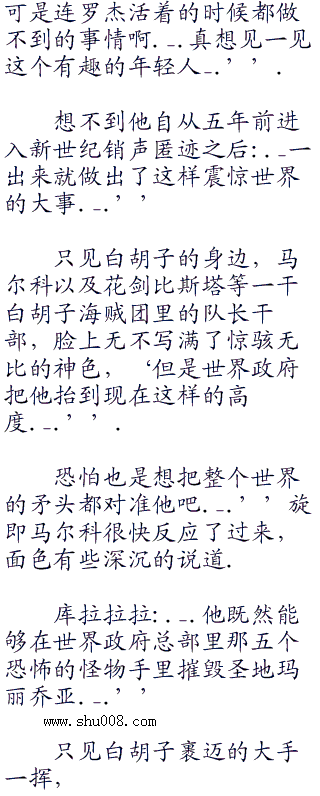 可是连罗杰活着的时候都做
不到的事情啊._.真想见一见
这个有趣的年轻人_.’’.
想不到他自从五年前进
入新世纪销声匿迹之后:._一
出来就做出了这样震惊世界
的大事._.’’
只见白胡子的身边，马
尔科以及花剑比斯塔等一干
白胡子海贼团里的队长干
部，脸上无不写满了惊骇无
比的神色，‘但是世界政府
把他抬到现在这样的高
度._.’’.
恐怕也是想把整个世界
的矛头都对准他吧._.’’旋
即马尔科很快反应了过来，
面色有些深沉的说道.
库拉拉拉:._.他既然能
够在世界政府总部里那五个
恐怖的怪物手里摧毁圣地玛
丽乔亚._.’’
www.shu008.com
只见白胡子裹迈的大手
一挥，